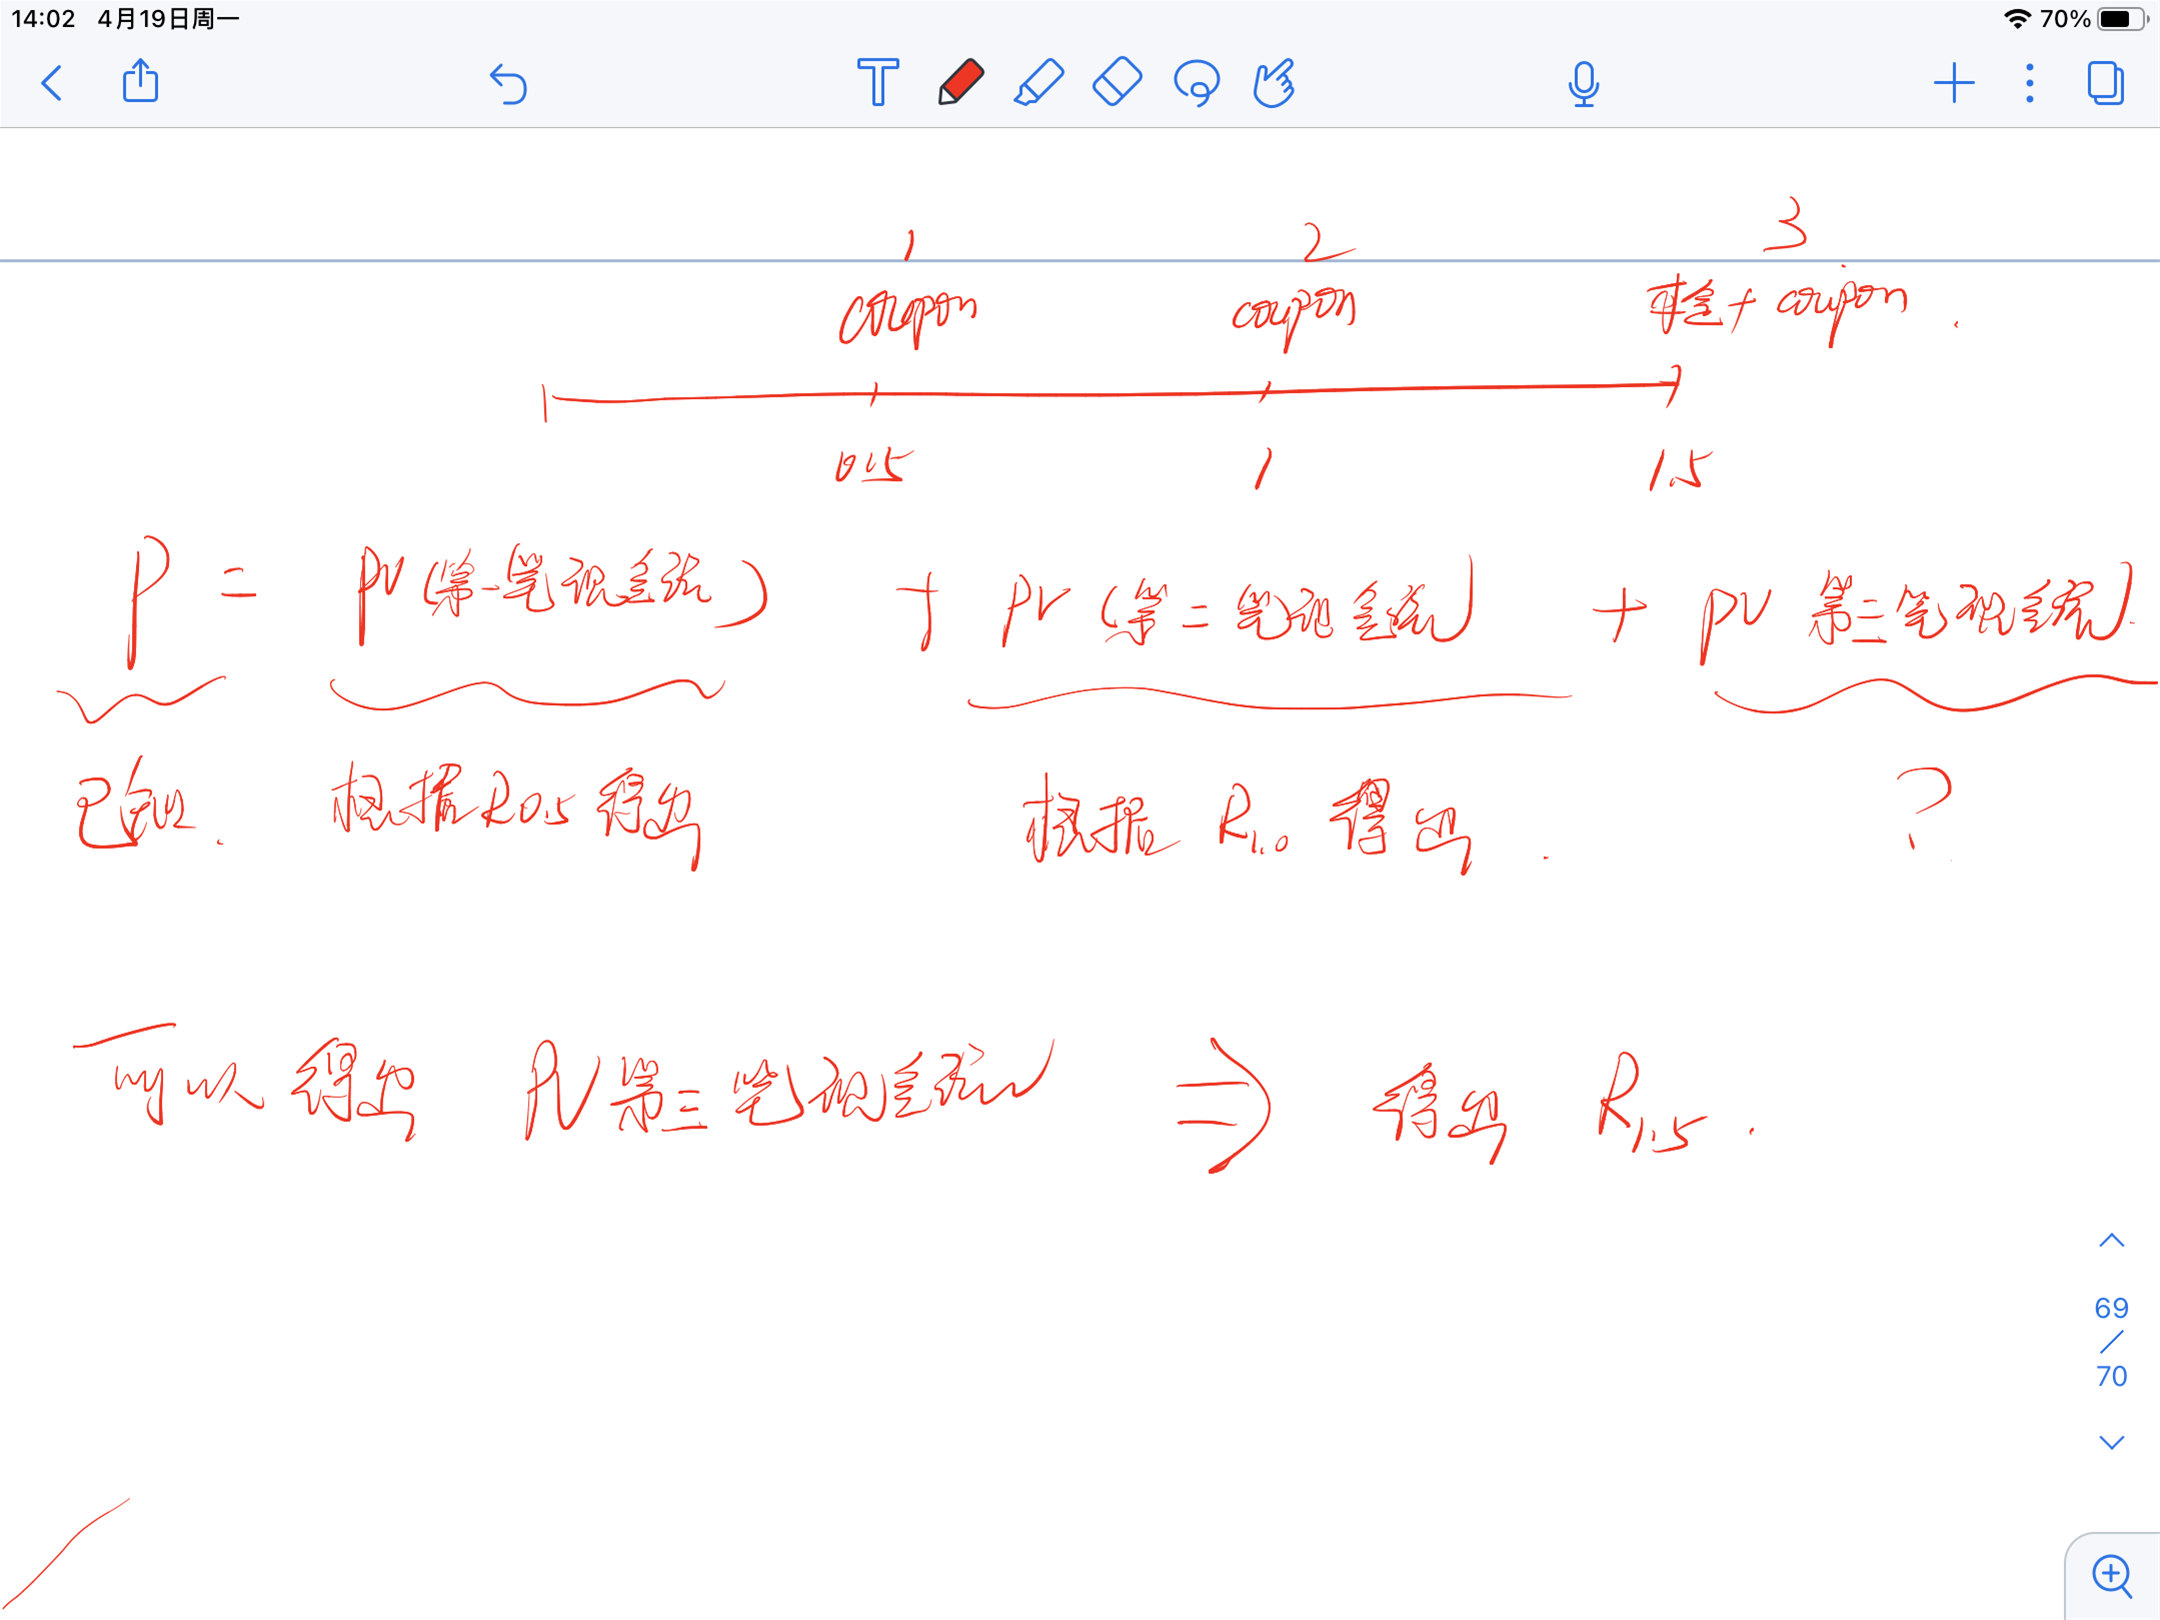 14:02 4月19日周一 70%
1 2 3
coupon coupon 本金+ coupon.
0.5 1 1.5
P = PV(第一笔现金流) + PV (第二笔现金流) + PV 第三笔现金流)
已知. 根据R0.5得出 根据 R1.0 得出. ?
可以得出 PV第三笔现金流 ⇒ 得出 R1.5.
69
/
70